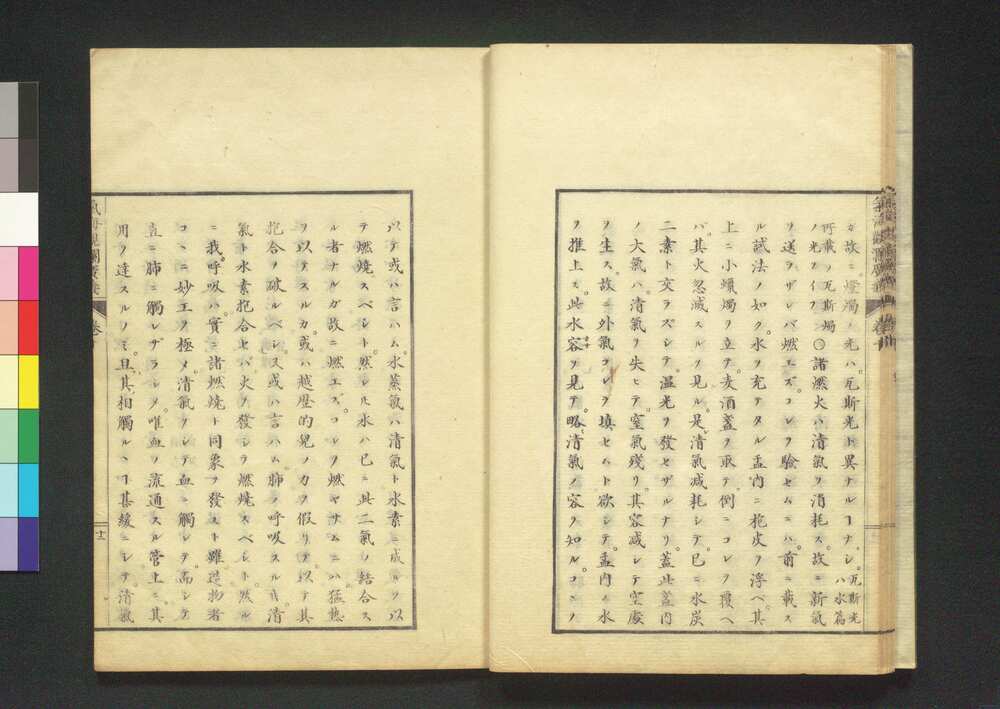 カ故ニ燈燭ノ光ハ瓦斯光ト異ナルヿナシ瓦斯光ハ水篇
所載ノ瓦斯燭ノ光ヲイフ○諸燃火ハ清氣ヲ消耗ス故ニ新氣
ヲ送ラザレバ燃エズコレヲ驗セムニハ前ニ載ス
ル試法ノ如ク水ヲ充テタル盂內ニ枹皮ヲ浮ベ其
上ニ小蠟燭ヲ立テ麦酒盞ヲ取テ倒ニコレヲ覆ヘ
バ其火忽滅スルヲ見ル是清氣減耗シテ已ニ水炭
二素ト交ラズシテ温光ヲ發セザルナリ蓋此盞內
ノ大氣ハ清氣ヲ失ヒテ窒氣殘リ其容減シテ空處
ヲ生ス故ニ外氣コレヲ填セムト欲シテ盂內ノ水
ヲ推上ス此水容ヲ見テ略清氣ノ容ヲ知ルヿヲ
以テ或ハ言ハム水蒸氣ハ清氣ト水素ニ成ルヲ以
テ燃燒スベシト然レ氏水ハ已ニ此二氣ノ結合ス
ル者ナルガ故ニ燃エズコレヲ燃ヤサムニハ猛熱
ヲ以テスルカ或ハ越歴的兒ノ力ヲ假リテ以テ其
抱合ヲ破ルベシ又或ハ言ハム肺ノ呼吸スル清
氣ト水素抱合セバ火ヲ發シテ燃燒スベシト然ル
ニ我呼吸ハ實ニ諸燃燒ト同象ヲ發スト雖造物者
コヽニ妙工ヲ極メ清氣ヲシテ血ニ觸レテ而シテ
直ニ肺ニ觸レザラシメ唯血ヲ流通スル管上ニ其
用ヲ達スルノミ且其相觸ルヽヿ甚緩ニシテ清氣
氣海觀瀾廣義
卷
十二